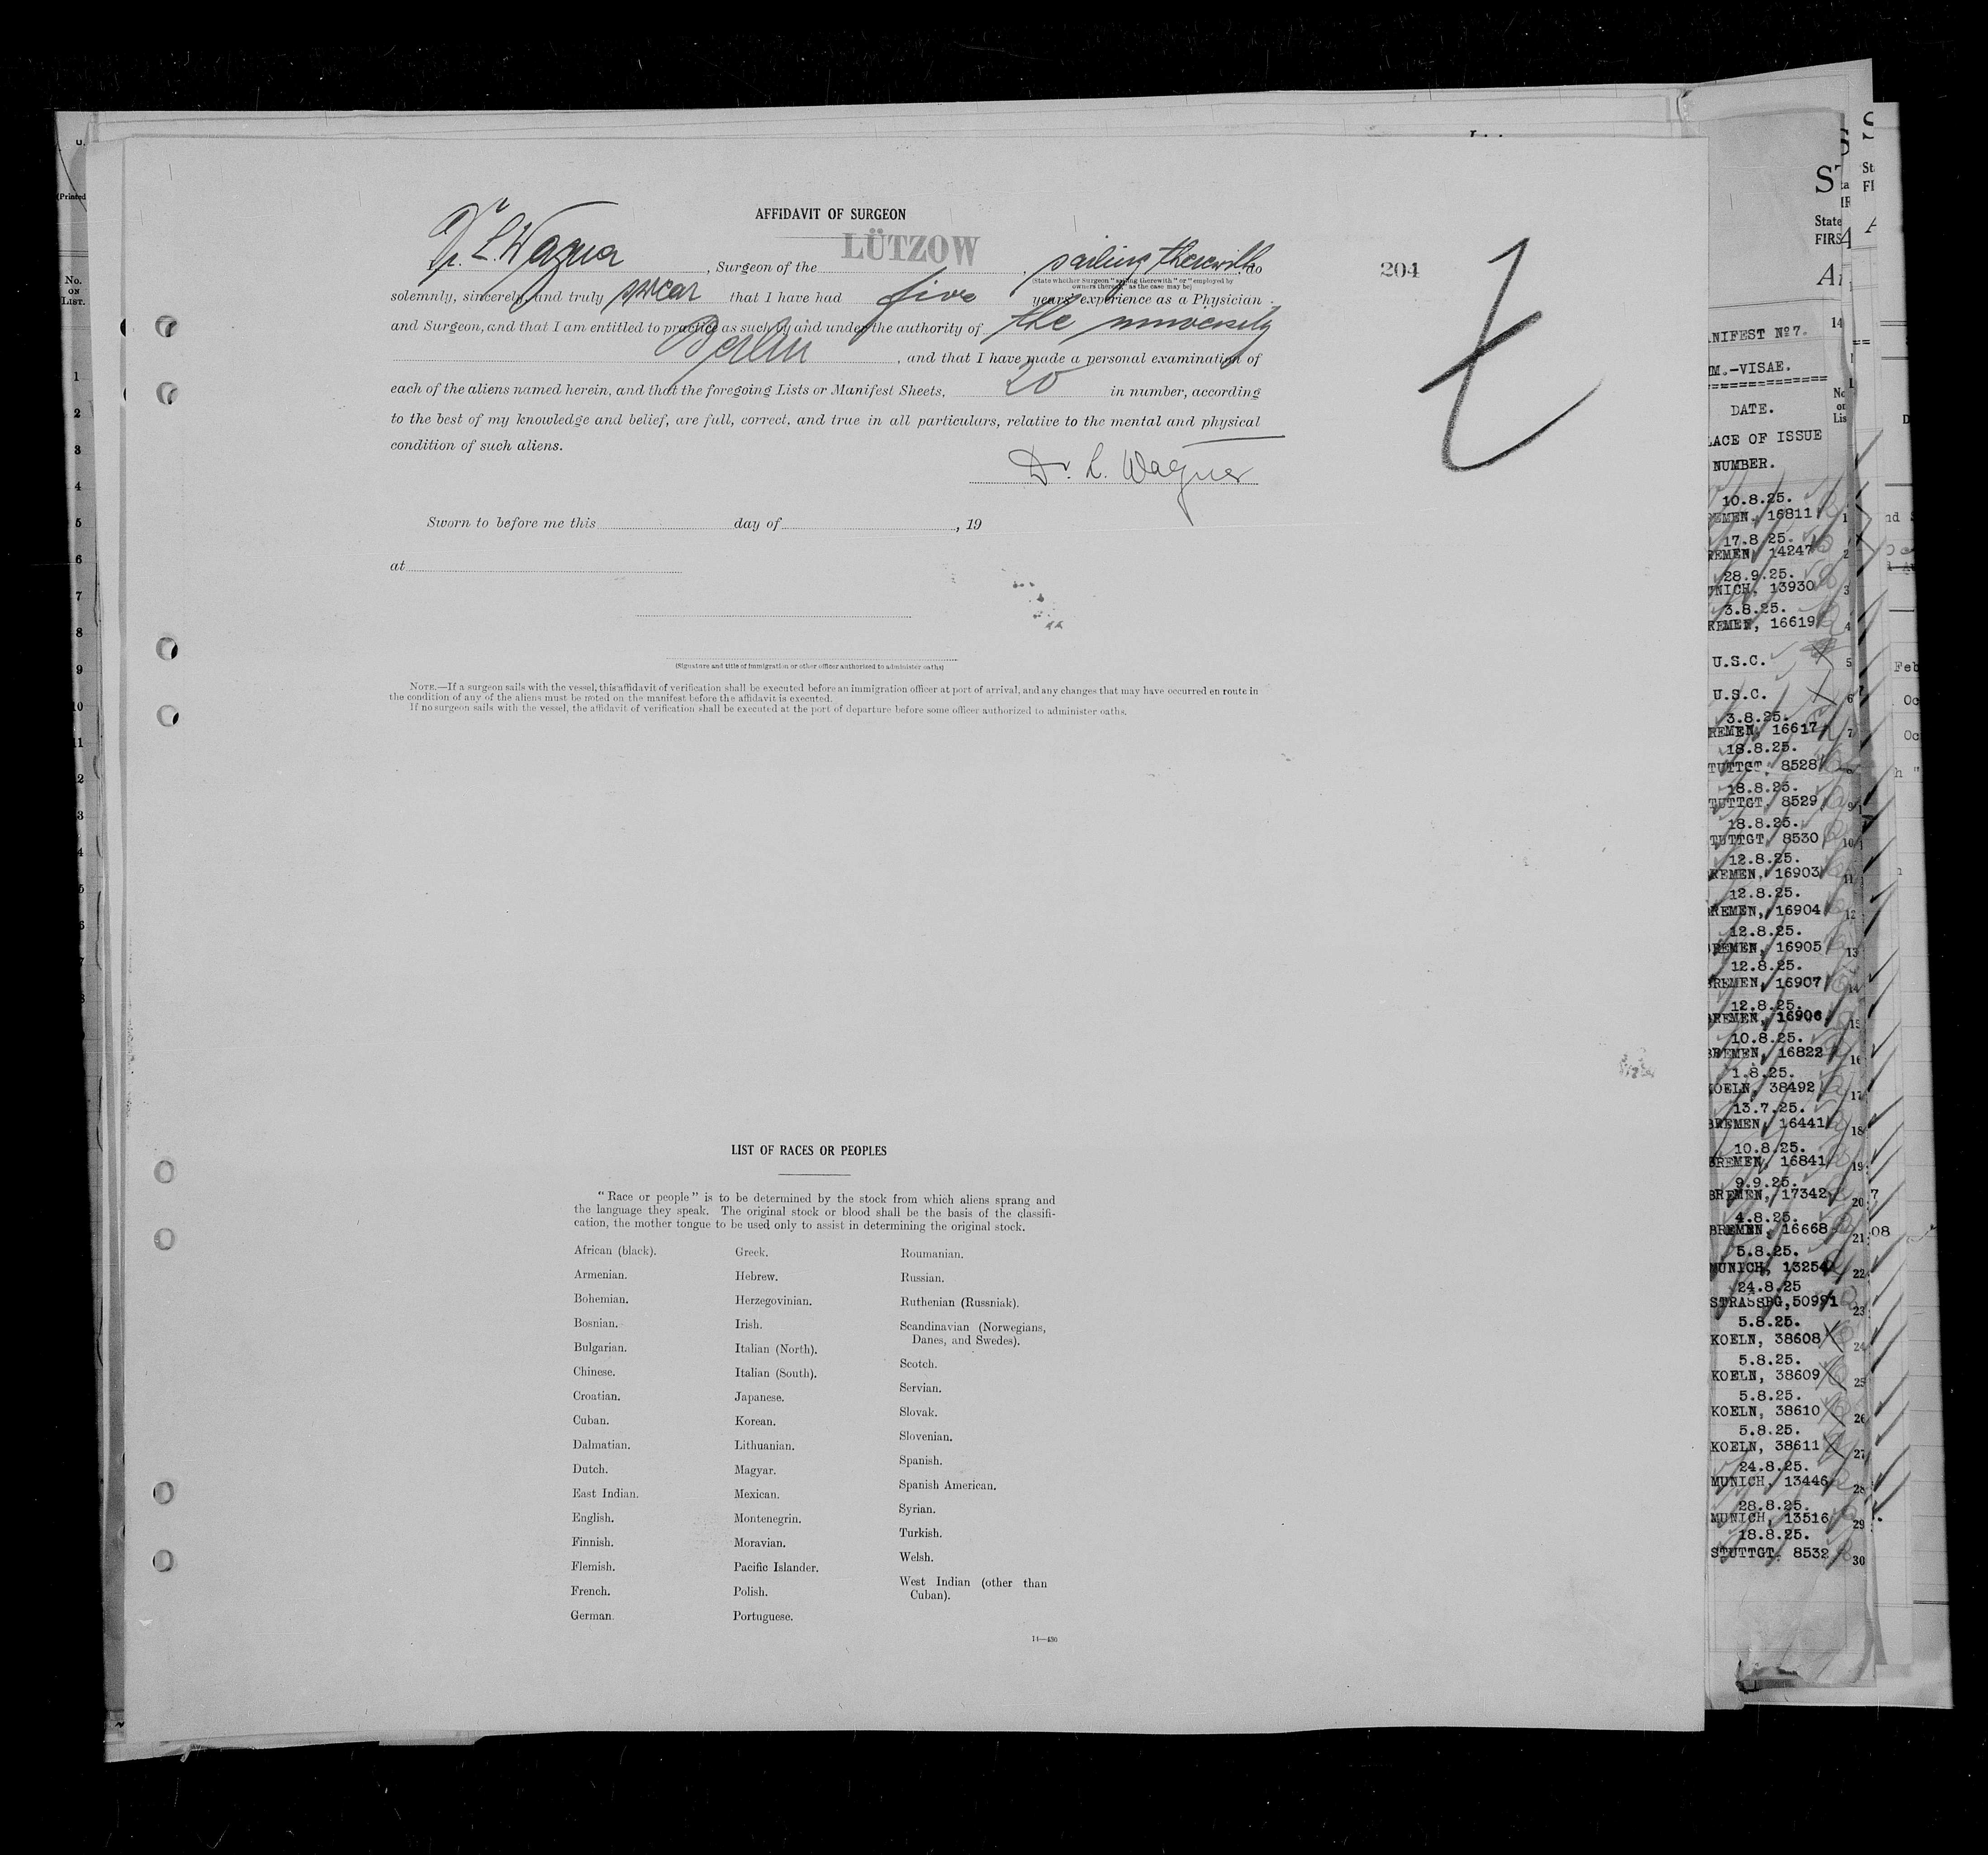 AFFIDAVIT OF SURGEON
Dr. L. Wagner, Surgeon of the LÜTZOW, sailing therewith, do
(State whether Surgeon "sailing therewith" or "employed by
owners thereof," as the case may be)
204
solemnly, sincerely, and truly swear that I have had five years' experience as a Physician
and Surgeon, and that I am entitled to practice as such by and under the authority of the university
Berlin, and that I have made a personal examination of
each of the aliens named herein, and that the foregoing Lists or Manifest Sheets, 20 in number, according
to the best of my knowledge and belief, are full, correct, and true in all particulars, relative to the mental and physical
condition of such aliens.
Dr. L. Wagner
Sworn to before me this day of , 19
at
(Signature and title of immigration or other officer authorized to administer oaths)
NOTE.—If a surgeon sails with the vessel, this affidavit of verification shall be executed before an immigration officer at port of arrival, and any changes that may have occurred en route in
the condition of any of the aliens must be noted on the manifest before the affidavit is executed.
If no surgeon sails with the vessel, the affidavit of verification shall be executed at the port of departure before some officer authorized to administer oaths.
LIST OF RACES OR PEOPLES
"Race or people" is to be determined by the stock from which aliens sprang and
the language they speak. The original stock or blood shall be the basis of the classifi-
cation, the mother tongue to be used only to assist in determining the original stock.
African (black).
Armenian.
Bohemian.
Bosnian.
Bulgarian.
Chinese.
Croatian.
Cuban.
Dalmatian.
Dutch.
East Indian.
English.
Finnish.
Flemish.
French.
German.
Greek.
Hebrew.
Herzegovinian.
Irish.
Italian (North).
Italian (South).
Japanese.
Korean.
Lithuanian.
Magyar.
Mexican.
Montenegrin.
Moravian.
Pacific Islander.
Polish.
Portuguese.
Roumanian.
Russian.
Ruthenian (Russniak).
Scandinavian (Norwegians,
Danes, and Swedes).
Scotch.
Servian.
Slovak.
Slovenian.
Spanish.
Spanish American.
Syrian.
Turkish.
Welsh.
West Indian (other than
Cuban).
14—430
(Printed
No.
ON
LIST.
1
2
3
4
5
6
7
8
9
10
11
State
FIRS
NIFEST Nº7.
M.-VISAE.
DATE.
LACE OF ISSUE
NUMBER.
10.8.25.
EMEN, 16811 1
17.8.25.
REMEN, 14247 2
28.9.25.
UNICH, 13930 3
3.8.25.
REMEN, 16619 4
U.S.C. 5
U.S.C. 6
3.8.25.
REMEN, 16617 7
18.8.25.
TUTTGT, 8528
18.8.25.
TUTTGT, 8529 9
18.8.25.
TUTTGT, 8530 10
12.8.25.
REMEN, 16903 11
12.8.25.
REMEN, 16904 12
12.8.25.
BREMEN, 16905 13
12.8.25.
BREMEN, 16907 14
12.8.25.
BREMEN, 16906 15
10.8.25.
BREMEN, 16822 16
1.8.25.
KOELN, 38492 17
13.7.25.
BREMEN, 16441 18
10.8.25.
BREMEN, 16841 19
9.9.25.
BREMEN, 17342 20
4.8.25.
BREMEN, 16668 21
5.8.25.
MUNICH, 13254 22
24.8.25
STRASSBG, 50991 23
5.8.25.
KOELN, 38608 24
5.8.25.
KOELN, 38609 25
5.8.25.
KOELN, 38610 26
5.8.25.
KOELN, 38611 27
24.8.25.
MUNICH, 13446 28
28.8.25.
MUNICH, 13516 29
18.8.25.
STUTTGT, 8532 30
Feb
Oc
Oc